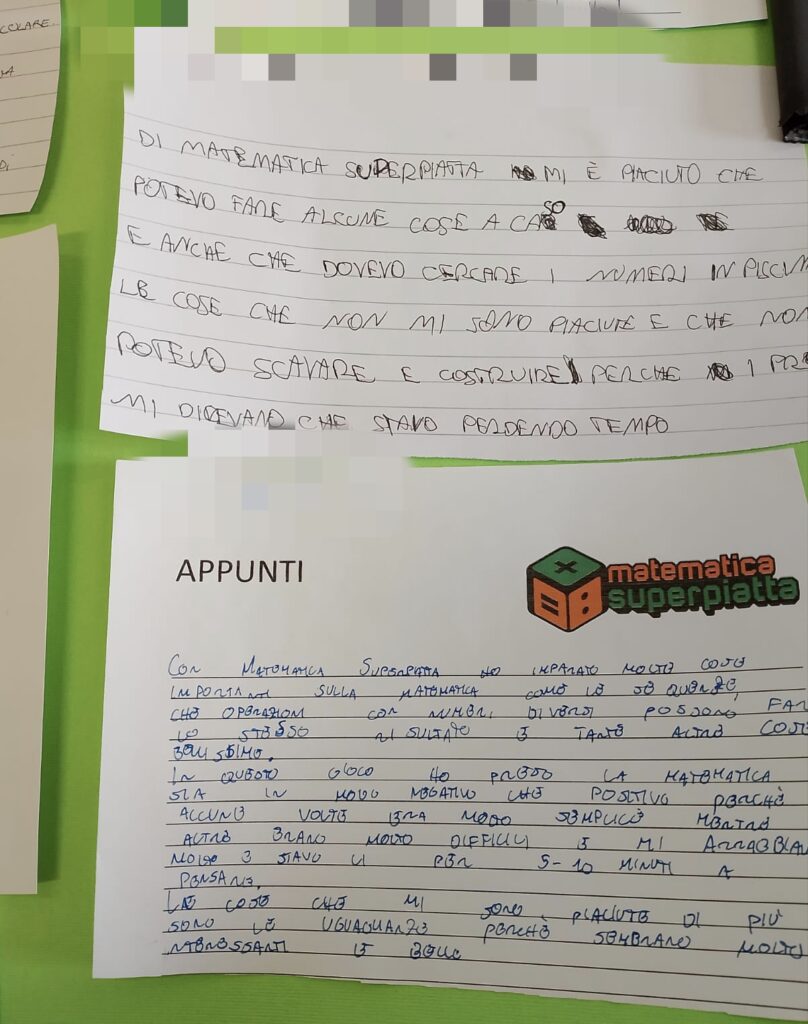 COLARE.
DI MATEMATICA SUPERPIATTA MI È PIACIUTO CHE
POTEVO FARE ALCUNE COSE A CASO
E ANCHE CHE DOVEVO CERCARE I NUMERI IN PISCIN
LE COSE CHE NON MI SONO PIACIUTE E CHE NON
POTEVO SCAVARE E COSTRUIRE PERCHE I PR
MI DICEVANO CHE STAVO PERDENDO TEMPO
APPUNTI
matematica
superpiatta
CON MATEMATICA SUPERPIATTA HO IMPARATO MOLTE COSE
IMPORTANTI SULLA MATEMATICA COME LE
CHE OPERAZIONI CON NUMERI DIVERSI POSSONO FAR
LO STESSO RISULTATO E TANTE ALTRE COSE
BELLISSIME.
IN QUESTO GIOCO HO PRESO LA MATEMATICA
SIA IN MODO NEGATIVO CHE POSITIVO PERCHÈ
ALCUNE VOLTE ERA MOLTO SEMPLICE MENTRE
ALTRE ERANO MOLTO DIFFICILI E MI ARRABBIAV
E STAVO LI PER 5-10 MINUTI A
PENSARE.
LE COSE CHE MI SONO PIACIUTE DI PIÙ
SONO LE UGUAGLIANZE PERCHÈ SEMBRANO MOLTO
INTERESSANTI E BELLE